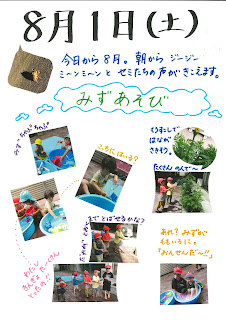 8月1日(土)
今日から8月。朝から ジージー
ミーンミーンと セミたちの声がきこえます。
みずあそび
みず ちゃぷちゃぷ
こっちにはいる？
もうすこしで
はなが
さきそう
たくさん のんで〜
までとばせるかな？
わたし
あれ？みずが
ももいろに。
「おんせんだ〜!!」